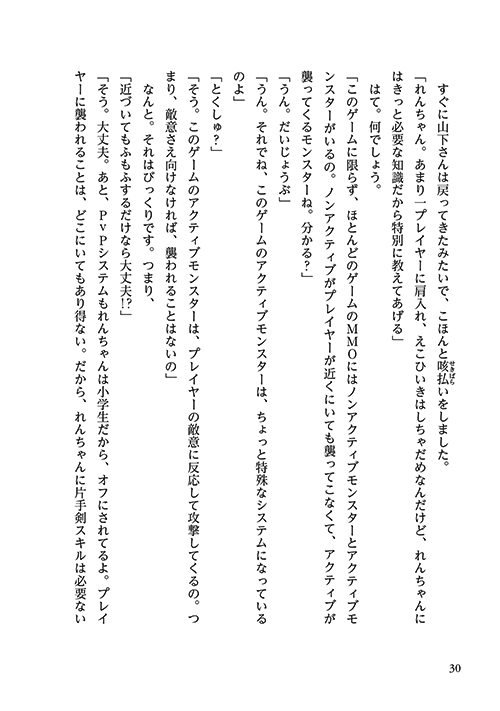 すぐに山下さんは戻ってきたみたいで、こほんと咳払いをしました。
せきばら
「れんちゃん。あまり一プレイヤーに肩入れ、えこひいきはしちゃだめなんだけど、れんちゃんに
はきっと必要な知識だから特別に教えてあげる」
はて。何でしょう。
「このゲームに限らず、ほとんどのゲームのMMOにはノンアクティブモンスターとアクティブモ
ンスターがいるの。ノンアクティブがプレイヤーが近くにいても襲ってこなくて、アクティブが
襲ってくるモンスターね。分かる?」
「うん。だいじょうぶ」
「うん。それでね、このゲームのアクティブモンスターは、ちょっと特殊なシステムになっている
のよ」
「とくしゅ?」
「そう。このゲームのアクティブモンスターは、プレイヤーの敵意に反応して攻撃してくるの。つ
まり、敵意さえ向けなければ、襲われることはないの」
なんと。それはびっくりです。つまり、
「近づいてもふもふするだけなら大丈夫!?」
「そう。大丈夫。あと、PvPシステムもれんちゃんは小学生だから、オフにされてるよ。プレイ
ヤーに襲われることは、どこにいてもあり得ない。だから、れんちゃんに片手剣スキルは必要ない
30